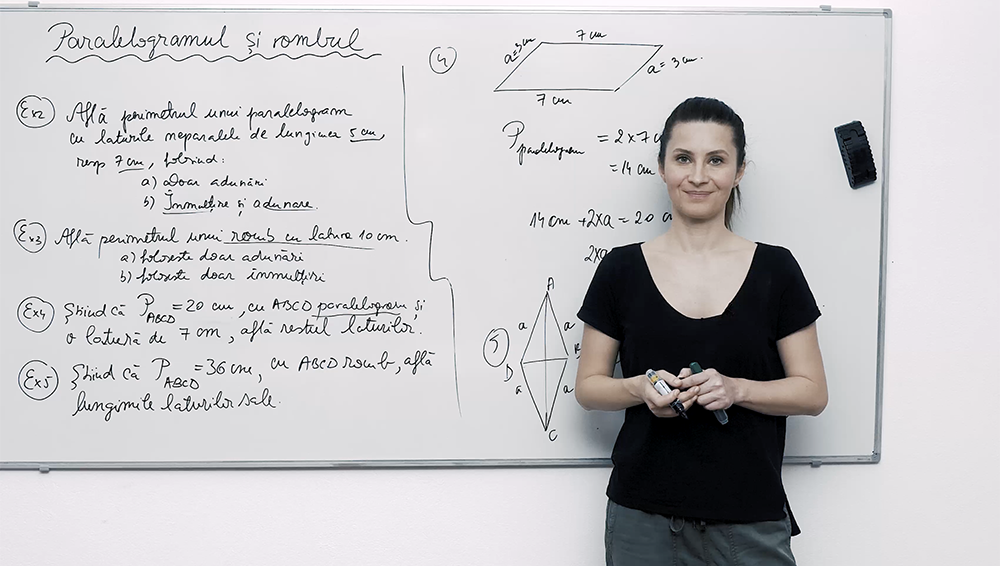 Paralelogramul și rombul
Ex2 Află perimetrul unui paralelogram
cu laturile neparalele de lungimea 5 cm,
resp 7 cm, folosind:
a) Doar adunări
b) Înmulțire și adunare.
Ex3 Află perimetrul unui romb cu latura 10 cm.
a) folosește doar adunări
b) folosește doar înmulțiri
Ex4 Știind că P ABCD = 20 cm, cu ABCD paralelogram și
o latură de 7 cm, află restul laturilor.
Ex5 Știind că P ABCD = 36 cm, cu ABCD romb, află
lungimile laturilor sale.
4
7 cm
a=3 cm
a= 3 cm.
7 cm
P paralelogram = 2 x 7 c
= 14 cm
14 cm + 2xa = 20 c
2xa
5
A
a a
D B
a a
C